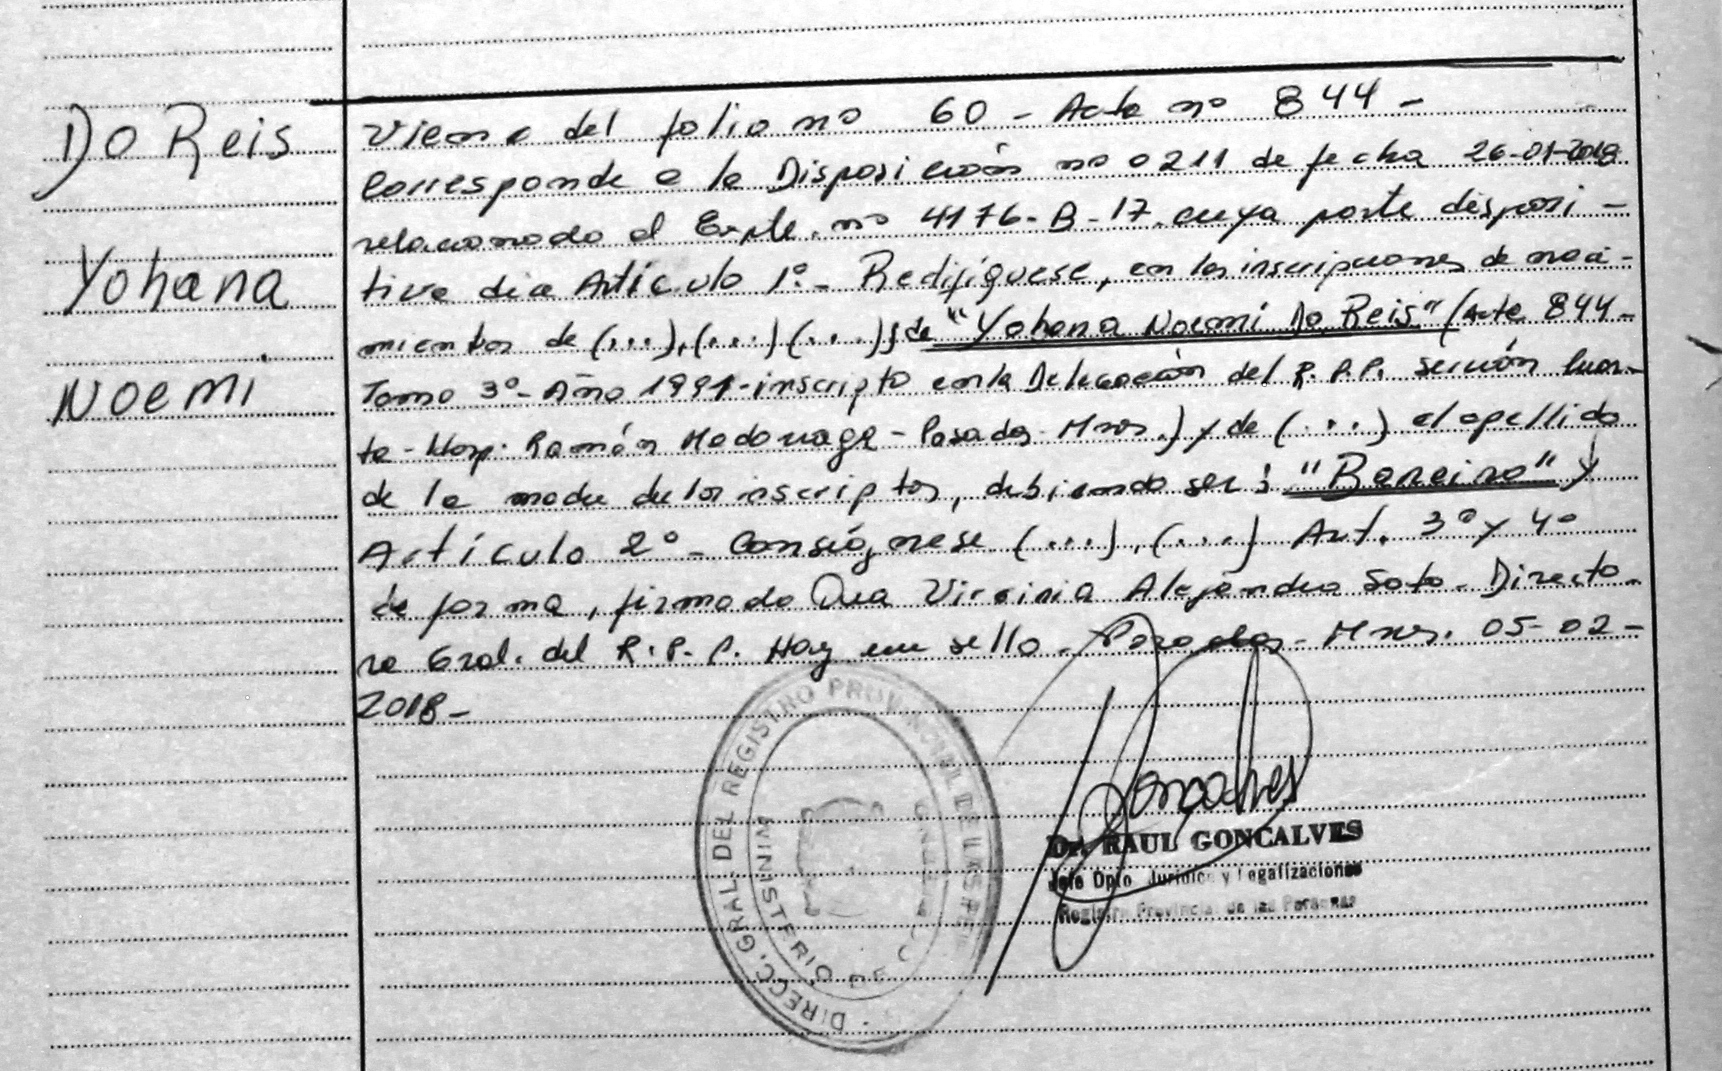 Do Reis
Yohana
Noemi
Viene del folio nº 60 - Acta nº 844 -
Corresponde a la Disposición nº 0211 de fecha 26-01-2018
relacionado al Expte. nº 4176-B-17. cuya parte disposi-
tiva dice Artículo 1º.- Redifíquese, en las inscripciones de naci-
mientos de (...), (...) (...) y de "Yohana Noemí Do Reis" (Acta 844-
Tomo 3º- Año 1991-inscripto en la Delegación del R.P.P. sección
ta-Hosp. Ramón Madariaga - Posadas-Mnes.) y de (...) el apellido
de la madre de los inscriptos, debiendo ser: "Bareiro" y
Artículo 2º- Consígnese (...), (...) Art. 3º y 4º
de forma, firmado Dra Virginia Alejandra Soto - Directo-
ra Gral. del R.P.P. Hay un sello - Posadas - Mnes. 05-02-
2018-
DIRECC. GRAL. DEL REGISTRO PROVINCIAL DE LAS PER
MINISTERIO DE GOBIERNO
Goncalves
Dr. RAUL GONCALVES
Jefe Dpto. Jurídico y Legalizaciones
Registro Provincial de las Personas